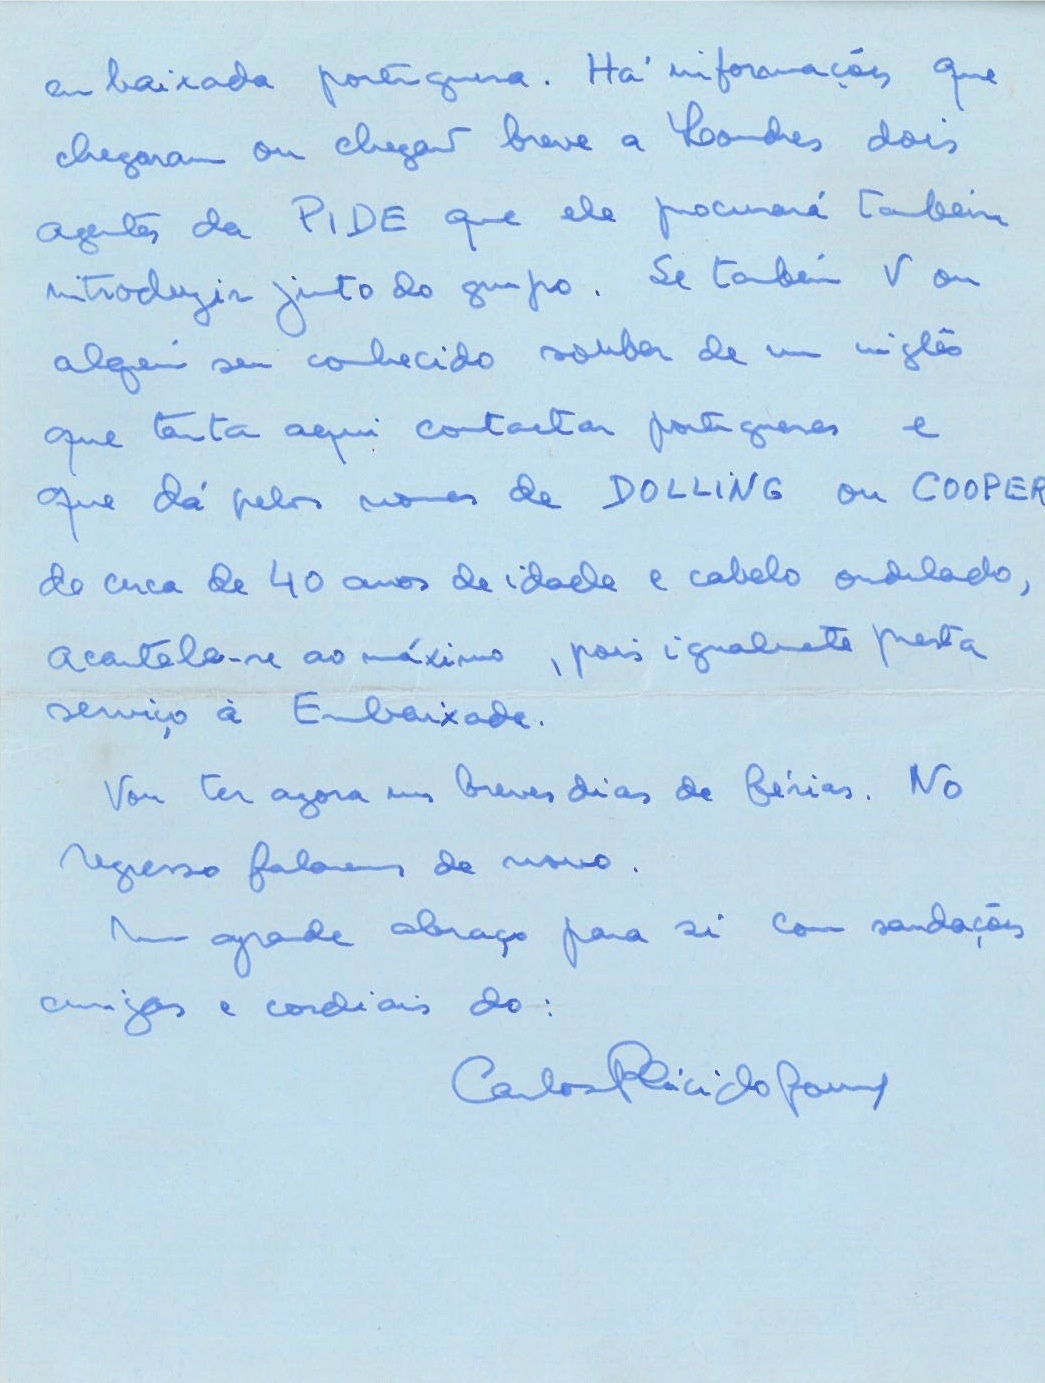 embaixada portuguesa. Há informações que
chegaram ou chegarão breve a Londres dois
agentes da PIDE que ele procurará também
introduzir junto do grupo. Se também V ou
alguém seu conhecido souber de um inglês
que tenta aqui contactar portugueses e
que dá pelos nomes de DOLLING ou COOPER
de cerca de 40 anos de idade e cabelo ondulado,
acautele-se ao máximo, pois igualmente presta
serviço à Embaixada.
Vou ter agora uns breves dias de férias. No
regresso falaremos de novo.
Um grande abraço para si com saudações
amigas e cordiais do:
Carlos Plácido